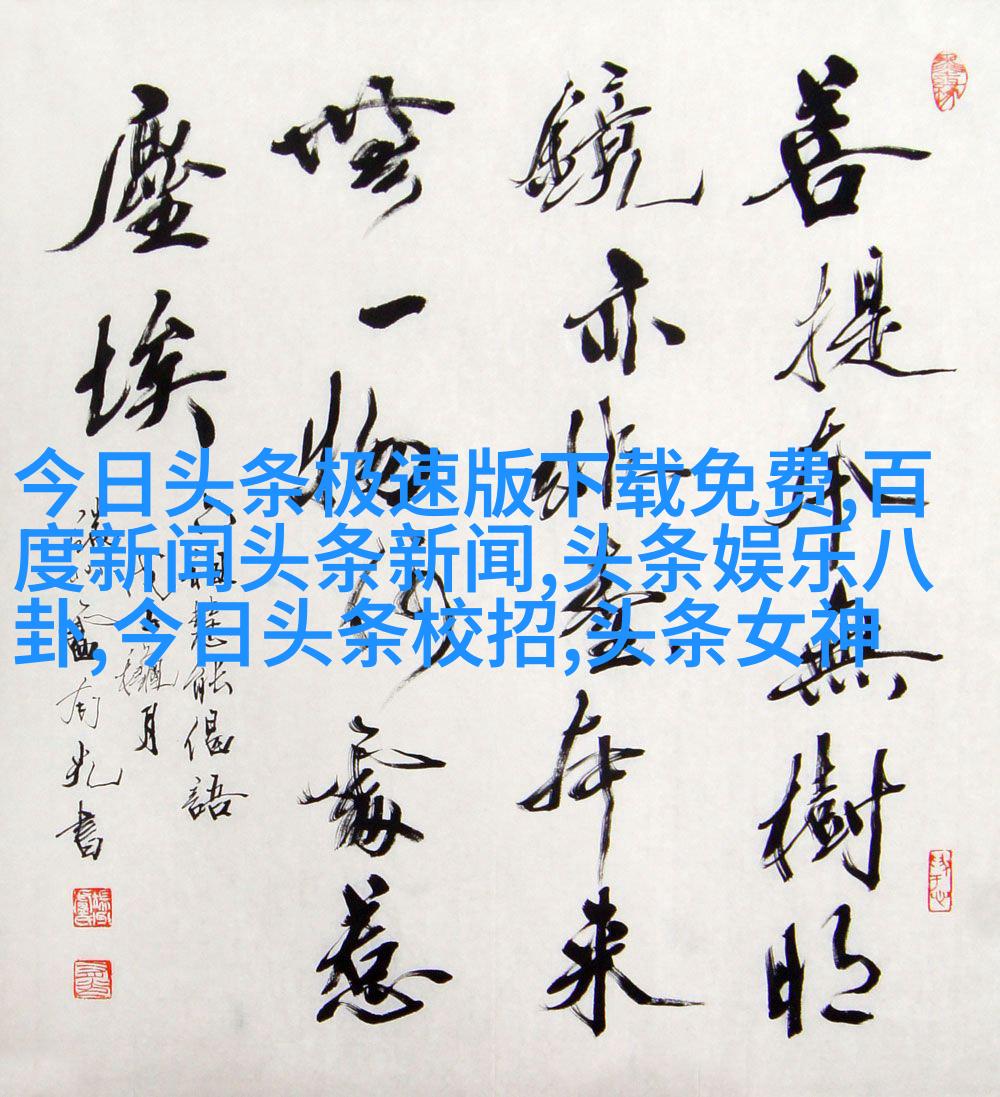 今日头条极速版下载免费,百
度新闻头条新闻,头条娱乐八
卦,今日头条校招,头条女神
菩提本無樹明
鏡亦非臺本來
無一物何處惹
塵埃
六祖慧能偈語